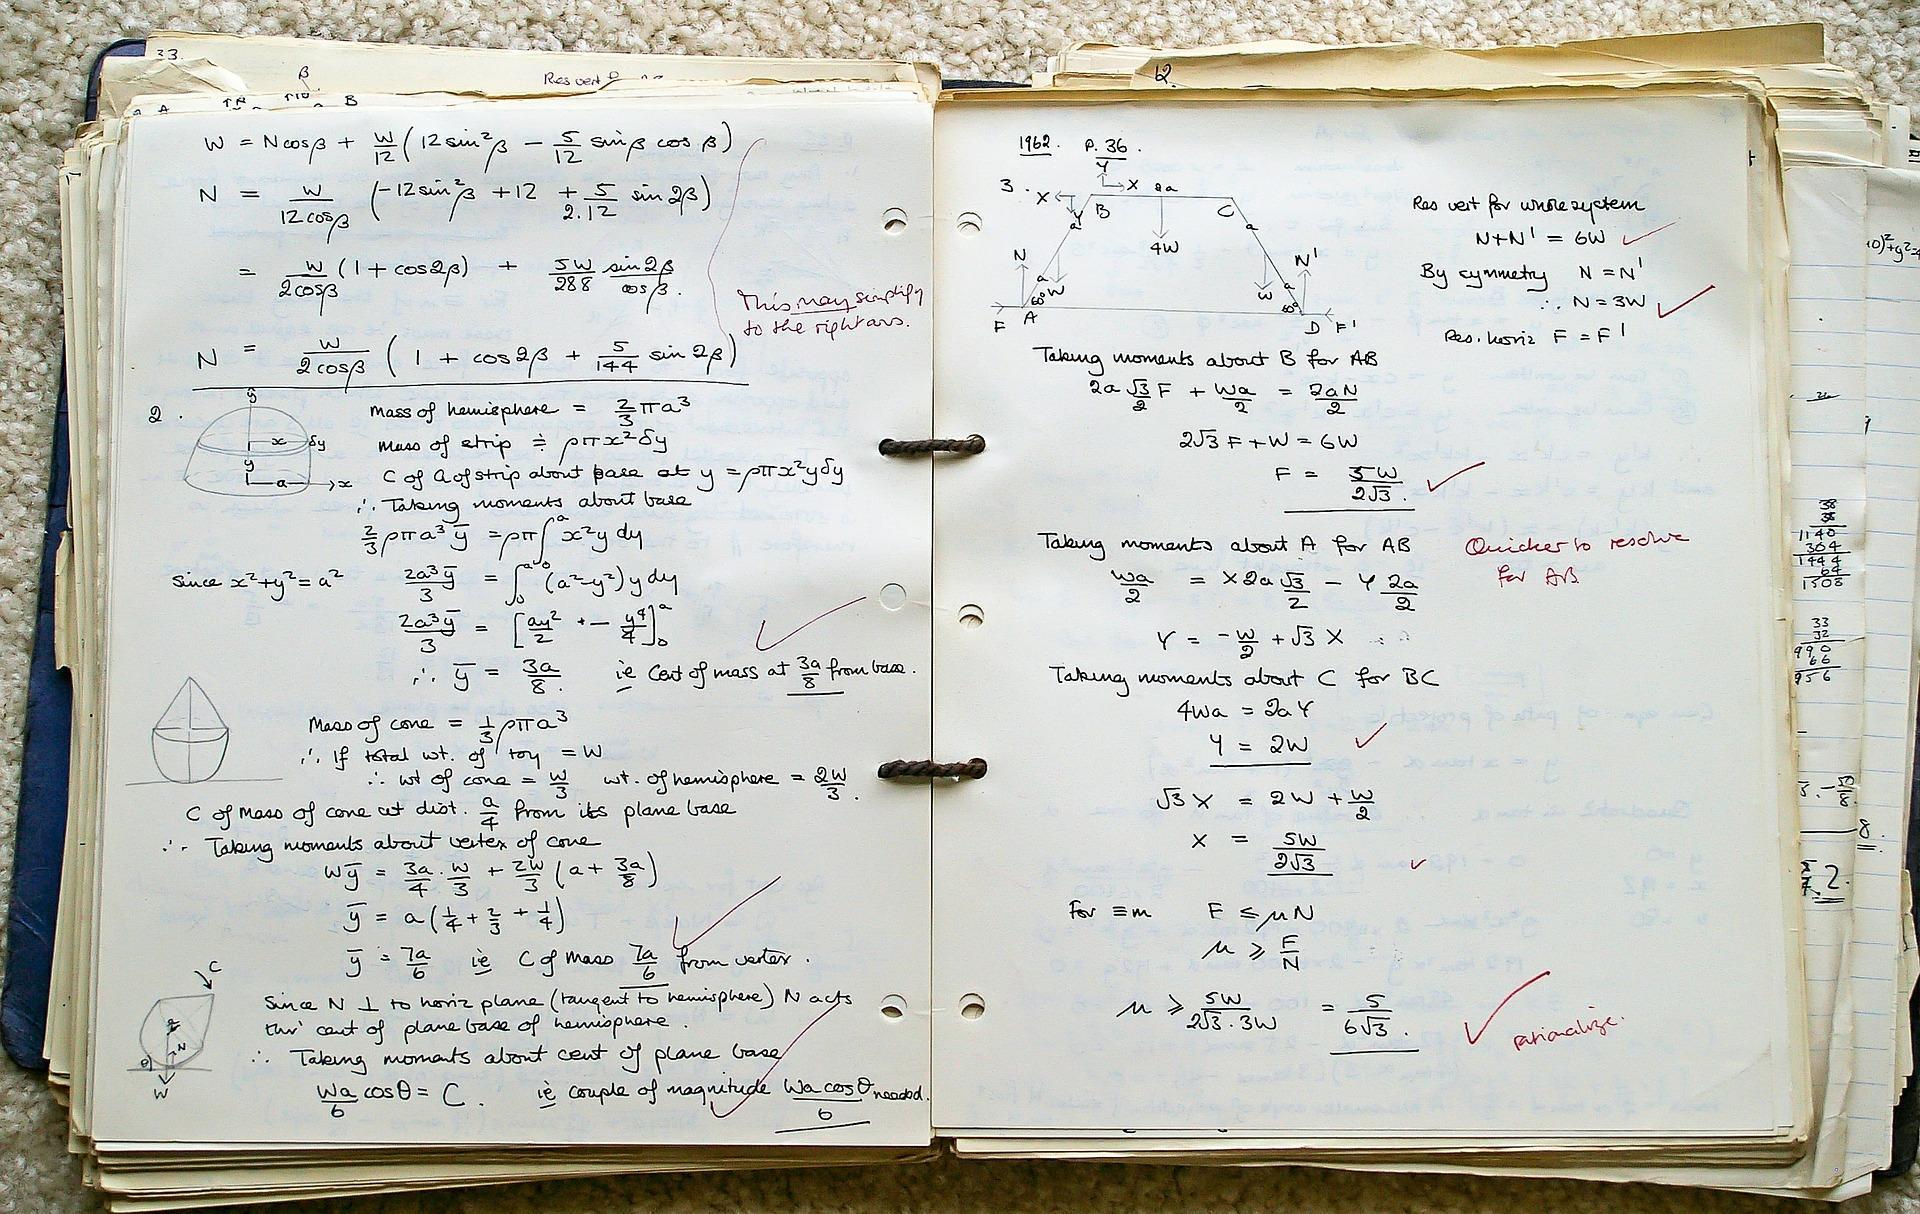 33.
β
Res vert
A B
W = N cosβ + W/12 (12 sin²β − 5/12 sinβ cos β)
N = W/12cosβ (−12 sin²β + 12 + 5/2.12 sin 2β)
= W/2cosβ (1 + cos2β) + 5W/288 sin2β/cosβ.
This may simplify
to the right ans.
N = W/2cosβ (1 + cos2β + 5/144 sin2β)
2.
Mass of hemisphere = 2/3 πa³
x δy
Mass of strip ≑ ρπx²δy
y
a x
C of G of strip about base at y = ρπx²yδy
∴ Taking moments about base
2/3 ρπa³ȳ = ρπ∫ᵃ₀ x²y dy
Since x²+y²=a² 2a³ȳ/3 = ∫ᵃ₀ (a²−y²) y dy
2a³ȳ/3 = [ay²/2 + − y⁴/4]ᵃ₀
∴ ȳ = 3a/8. ie Cent of mass at 3a/8 from base.
Mass of cone = 1/3 ρπa³
∴ If total wt. of toy = W
∴ wt of cone = W/3 wt. of hemisphere = 2W/3.
C of Mass of cone at dist. a/4 from its plane base
∴ Taking moments about vertex of cone
Wȳ = 3a/4 . W/3 + 2W/3 (a + 3a/8)
ȳ = a(1/4 + 2/3 + 1/4)
ȳ = 7a/6 ie C of Mass 7a/6 from vertex.
C
Since N ⊥ to horiz plane (tangent to hemisphere) N acts
thro' cent of plane base of hemisphere.
N
θ
W
∴ Taking moments about cent of plane base
Wa/6 cosθ = C. ie couple of magnitude Wa cosθ/6 needed.
12
1962. P. 36.
3.
Y
X X 2a
Y B C
a a
4W
N N'
a W W a
60° 60°
F A D F'
Res vert for whole system
N+N' = 6W
By symmetry N = N'
∴ N = 3W
Res. horiz F = F'
Taking moments about B for AB
2a √3/2 F + Wa/2 = 2aN/2
2√3 F + W = 6W
F = 5W/2√3.
Taking moments about A for AB
Quicker to resolve
for AB
Wa/2 = X 2a √3/2 − Y 2a/2
Y = −W/2 + √3 X
Taking moments about C for BC
4Wa = 2aY
Y = 2W
√3 X = 2W + W/2
X = 5W/2√3
For ≡m F ≤ μN
μ ≥ F/N
μ ≥ 5W/2√3 . 3W = 5/6√3.
rationalize.
38
38
1140
304
1444
64
1508
33
32
990
66
956
8.
2.